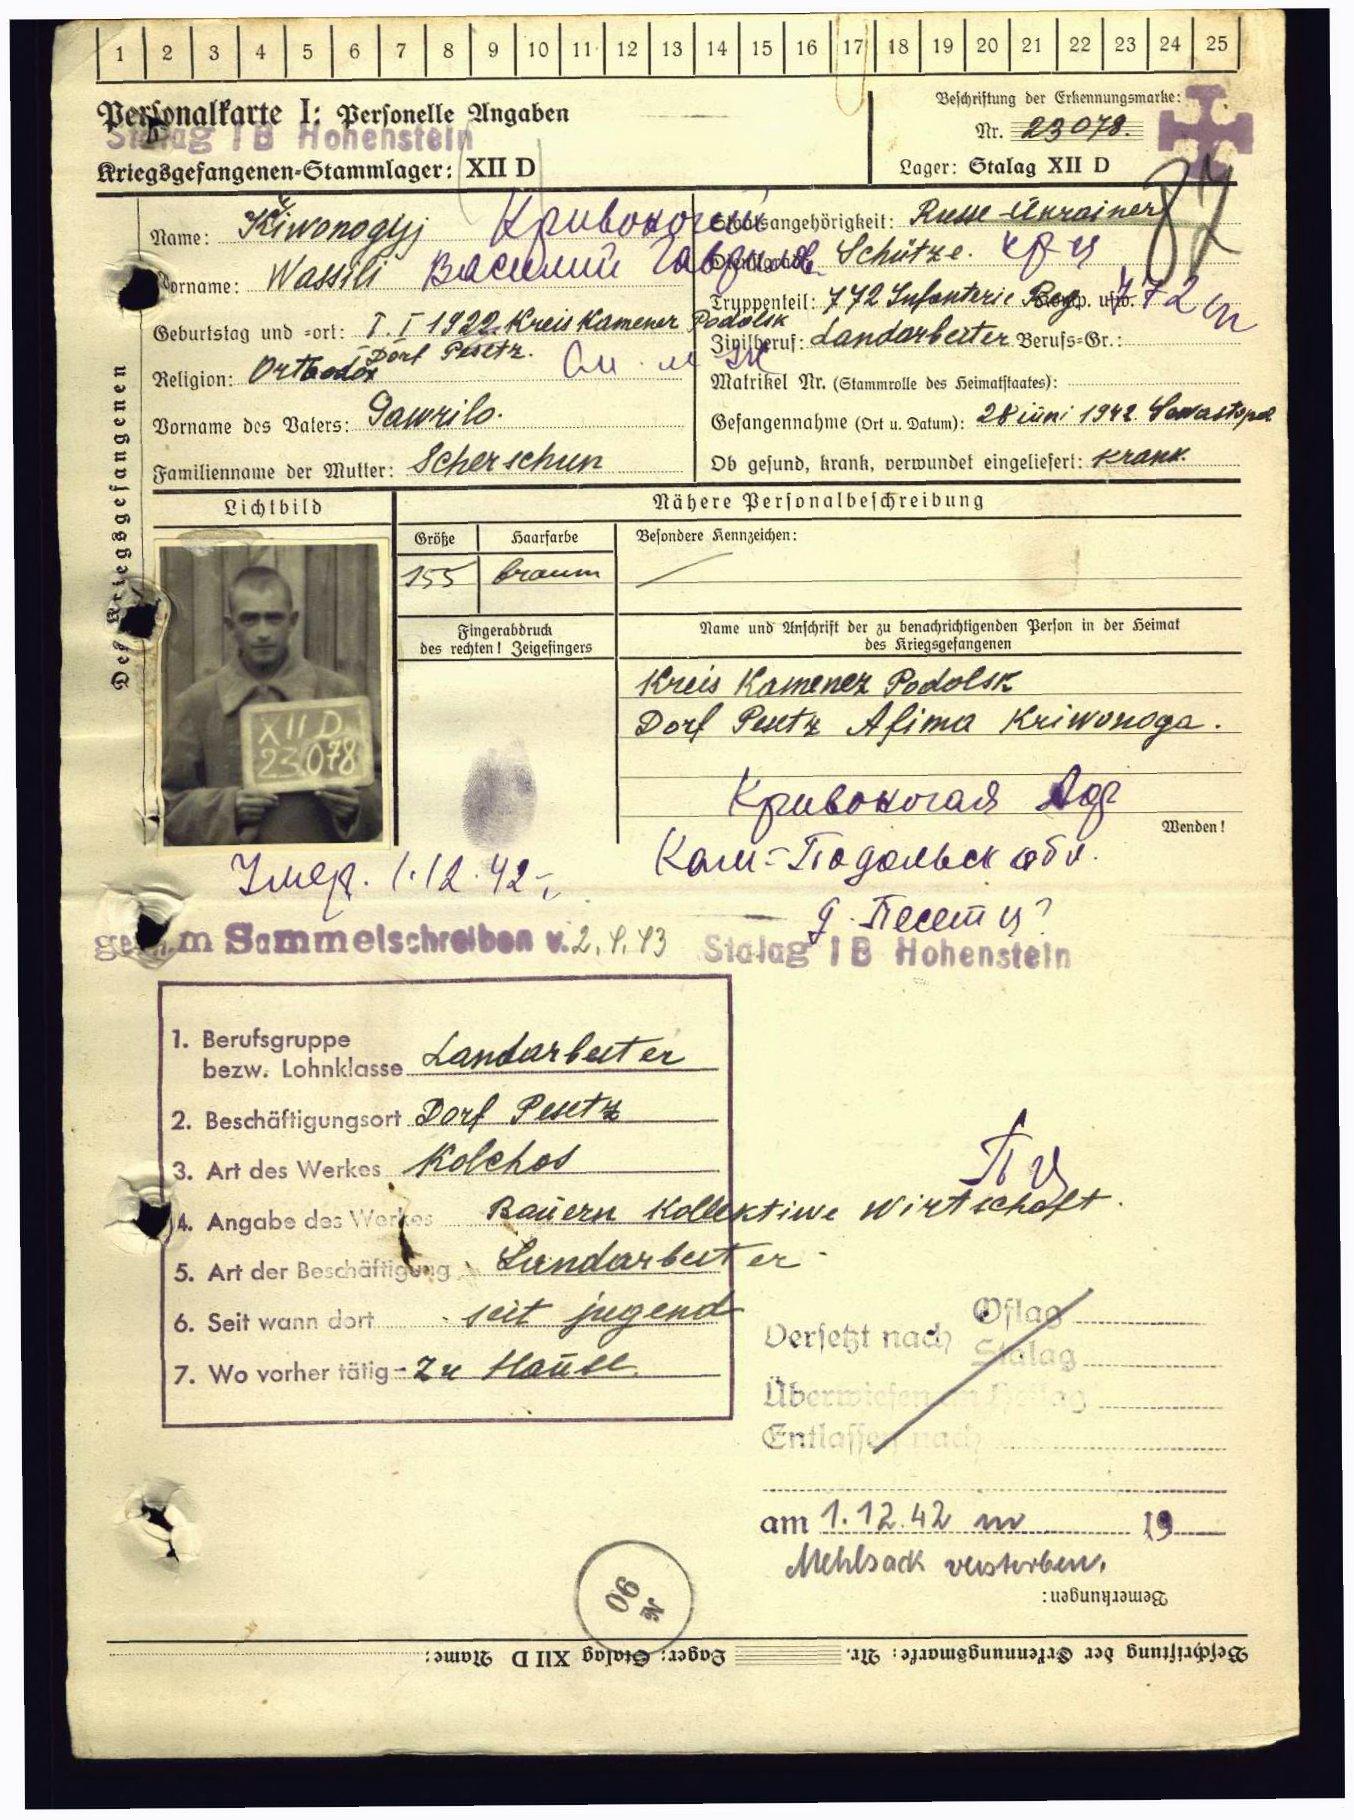 1 2 3 4 5 6 7 8 9 10 11 12 13 14 15 16 17 18 19 20 21 22 23 24 25
Personalkarte I: Personelle Angaben
Stalag I B Hohenstein
Kriegsgefangenen-Stammlager: XII D
Beschriftung der Erkennungsmarke:
Nr. 23078.
Lager: Stalag XII D
Des Kriegsgefangenen
Name: Kiwonogyj Кривоногий
Vorname: Wassili Василий Гаврилов.
Geburtstag und -ort: I. I 1922 Kreis Kamener Podolsk
Dorf Pesetz.
Religion: Orthodox
Vorname des Vaters: Gawrilo.
Familienname der Mutter: Scherschun
Staatsangehörigkeit: Russe-Ukrainer
Dienstgrad: Schütze.
Truppenteil: 772 Infanterie Reg. Komp. usw. 772
Zivilberuf: Landarbeiter Berufs-Gr.:
Matrikel Nr. (Stammrolle des Heimatstaates):
Gefangennahme (Ort u. Datum): 28 iüni 1942. Sewastopol
Ob gesund, krank, verwundet eingeliefert: krank.
Lichtbild
Nähere Personalbeschreibung
Größe Haarfarbe Besondere Kennzeichen:
155 braun
XII D
23078
Fingerabdruck
des rechten! Zeigefingers
Name und Anschrift der zu benachrichtigenden Person in der Heimat
des Kriegsgefangenen
Kreis Kamenez Podolsk
Dorf Pesetz Afima Kriwonoga.
Кривоногая
Wenden!
Кам-Подольск обл.
д. Песетц?
Умер. 1.12.42
Sammelschreiben v. 2.1.43 Stalag I B Hohenstein
1. Berufsgruppe
bezw. Lohnklasse Landarbeiter
2. Beschäftigungsort Dorf Pesetz
3. Art des Werkes Kolchos
4. Angabe des Werkes Bauern Kollektiwe wirtschaft.
5. Art der Beschäftigung Landarbeiter
6. Seit wann dort seit jugend
7. Wo vorher tätig - Zu Hause.
Versetzt nach Oflag
Stalag
Überwiesen an Heilag
Entlassen nach
am 1.12.42 in 19
Mehlsack verstorben.
Bemerkungen:
N
90
Beschriftung der Erkennungsmarke: Nr. Lager: Stalag XII D Name: